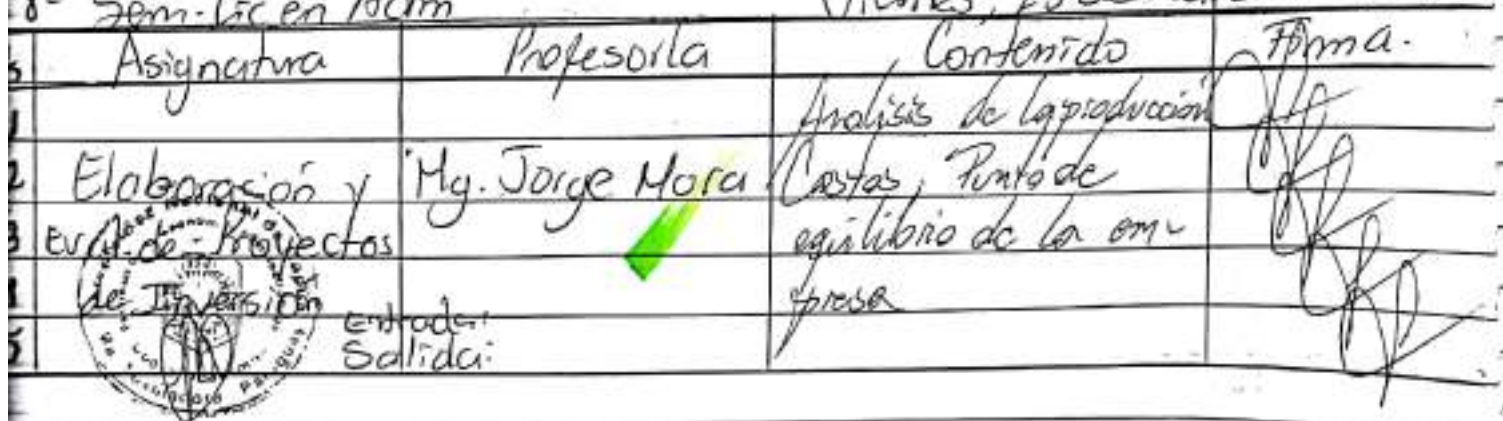 8º Sem-Lic en Adm Viernes,
Asignatura Profesor/a Contenido Firma.
Analisis de la producción
2 Elaboración y Mg. Jorge Mora Costos, Punto de
3 Eval. de Proyectos equilibrio de la em-
de Inversión presa
Entrada:
Salida:
Paraguay